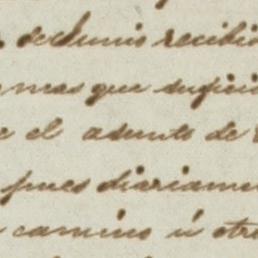 de Junio recibi
mas que sufici
e el asunto de
pues diariame
camino ú otr